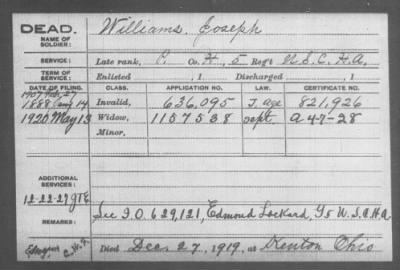 DEAD. Williams, Joseph
NAME OF
SOLDIER:
SERVICE: Late rank, P. Co. H, 5 Reg't U.S.C.H.A.
TERM OF
SERVICE: Enlisted , 1 Discharged , 1
DATE OF FILING. CLASS. APPLICATION NO. LAW. CERTIFICATE NO.
1907 Feb. 27
1888 Aug 14 Invalid, 636,095 J. age 821,926
1920 May 13 Widow, 1157538 Sept. A 4-7-28
Minor.
ADDITIONAL
SERVICES:
12-22-27
REMARKS: See I.O. 629,121, Edmond Lockard, G 5 U.S.C.H.A.
Died Dec. 27, 1919, at Kenton Ohio